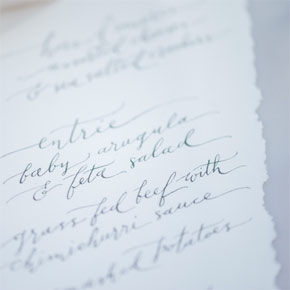 & sea salted crackers
entrée
baby arugula
& feta salad
grass fed beef with
chimichurri sauce
mashed potatoes